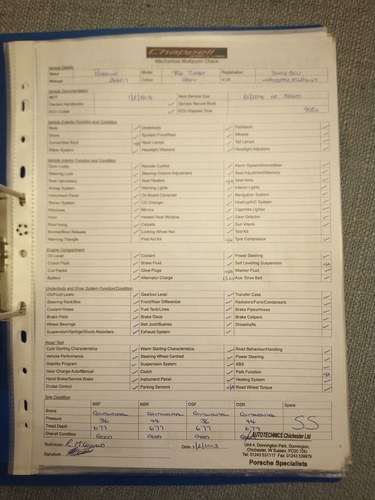 Chappell
Mechanical Multipoint Check
Vehicle Details
Name Model 911 Turbo Registration
Mileage Colour Grey V.I.N
Vehicle Documentation
MOT Next Service Due
Service Handbooks Service Record Book
ECU Codes ECU Elapsed Time
Vehicle Exterior Function and Condition
Body Underbody Paintwork
Doors Spoilers/Front/Rear Wheels
Convertible Roof Head Lamps Tail Lamps
Wiper System Headlight Washers Headlight Adjusters
Vehicle Interior Function and Condition
Door Locks Remote Control Alarm System/Immobiliser
Steering Lock Steering Column Adjustment Seat Adjustment/Memory
Seat Upholstery Seat Heaters Seat Belts
Airbag System Warning Lights Interior Lights
Instrument Panel On Board Computer Navigation System
Stereo System CD Changer Heating/A/C System
Windows Mirrors Cigarette Lighter
Horn Heated Rear Window Gear Selector
Roof lining Carpets Sun Visors
Bonnet/Boot Release Locking Wheel Nut Tool Kit
Warning Triangle First Aid Kit Tyre Compressor
Engine Compartment
Oil Level Coolant Power Steering
Clutch Fluid Brake Fluid Self Levelling Suspension
Coil Packs Glow Plugs Washer Fluid
Battery Alternator Charge Aux. Drive Belt
Underbody and Drive System Function/Condition
Oil/Fluid Leaks Gearbox Level Transfer Case
Steering Rack/Box Front/Rear Differential Radiators/Fans/Condensers
Coolant Hoses Fuel Tank/Lines Brake Pipes/Hoses
Brake Pads Brake Discs Brake Calipers
Wheel Bearings Ball Joint/Bushes Driveshafts
Suspension/Springs/Shock Absorbers Exhaust System
Road Test
Cold Starting Characteristics Warm Starting Characteristics Road Behaviour/Handling
Vehicle Performance Steering Wheel Centred Power Steering
Stability Program Suspension System ABS
Gear Change/Auto/Manual Clutch Park Function
Hand Brake/Service Brake Instrument Panel Heating System
Cruise Control Parking Sensors Road Wheel Torque
Tyre Condition
NSF NSR OSF OSR Spare
Brand Continental Continental Continental Continental
Pressure 36 44 36 44 SS
Tread Depth 677 677 677 677
Overall Condition Good Good Good Good
Technician
Date
Signature
AUTOTECHNICS Chichester Ltd
Unit 4, Donnington Park, Donnington,
Chichester, W Sussex, PO20 7DU
Tel: 01243 531117 Fax: 01243 539979
Porsche Specialists